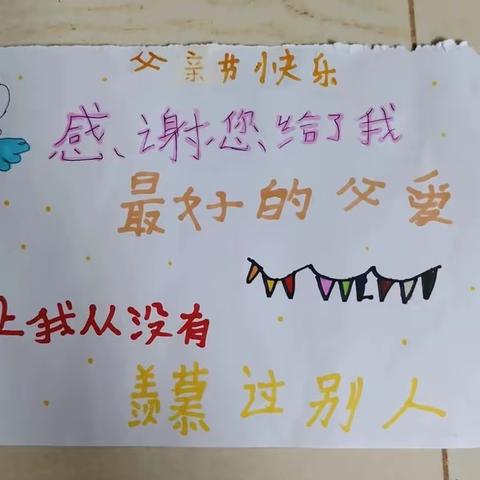 父亲节快乐
感谢您给了我
最好的父爱
让我从没有
羡慕过别人